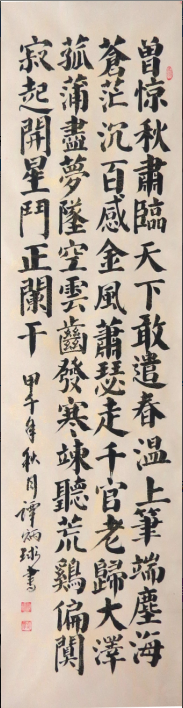 曾惊秋肅臨天下敢遣春温上筆端塵海
蒼茫沉百感金風蕭瑟走千官老歸大澤
孤蒲盡夢墜空雲齒發寒竦聽荒鷄偏闃
寂起開星鬥正闌干
甲午年秋月譚炳球書